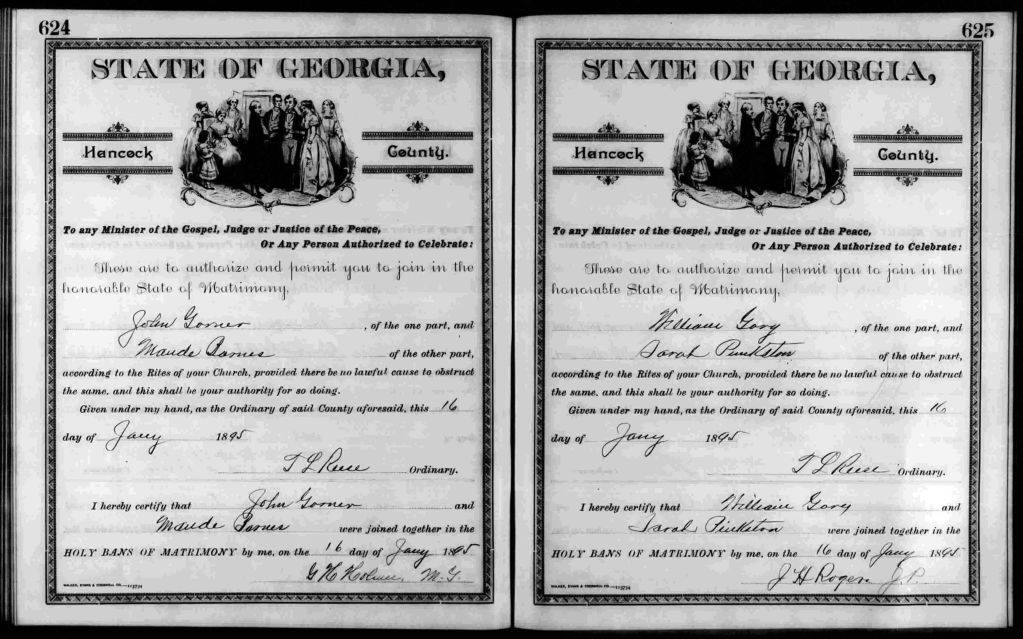 624
STATE OF GEORGIA,
Hancock County.
To any Minister of the Gospel, Judge or Justice of the Peace,
Or Any Person Authorized to Celebrate:
These are to authorize and permit you to join in the
honorable State of Matrimony,
John Gorner , of the one part, and
Maude Barnes of the other part,
according to the Rites of your Church, provided there be no lawful cause to obstruct
the same, and this shall be your authority for so doing.
Given under my hand, as the Ordinary of said County aforesaid, this 16
day of Jany 1895
T L Reese Ordinary.
I hereby certify that John Gorner and
Maude Barnes were joined together in the
HOLY BANS OF MATRIMONY by me, on the 16 day of Jany 1895
G H M. G.
WALKER, EVANS & COGSWELL CO.
625
STATE OF GEORGIA,
Hancock County.
To any Minister of the Gospel, Judge or Justice of the Peace,
Or Any Person Authorized to Celebrate:
These are to authorize and permit you to join in the
honorable State of Matrimony,
William Gary , of the one part, and
Sarah Pinkston of the other part,
according to the Rites of your Church, provided there be no lawful cause to obstruct
the same, and this shall be your authority for so doing.
Given under my hand, as the Ordinary of said County aforesaid, this 16
day of Jany 1895
T L Reese Ordinary.
I hereby certify that William Gary and
Sarah Pinkston were joined together in the
HOLY BANS OF MATRIMONY by me, on the 16 day of Jany 1895
J H Roger J.P.
WALKER, EVANS & COGSWELL CO.